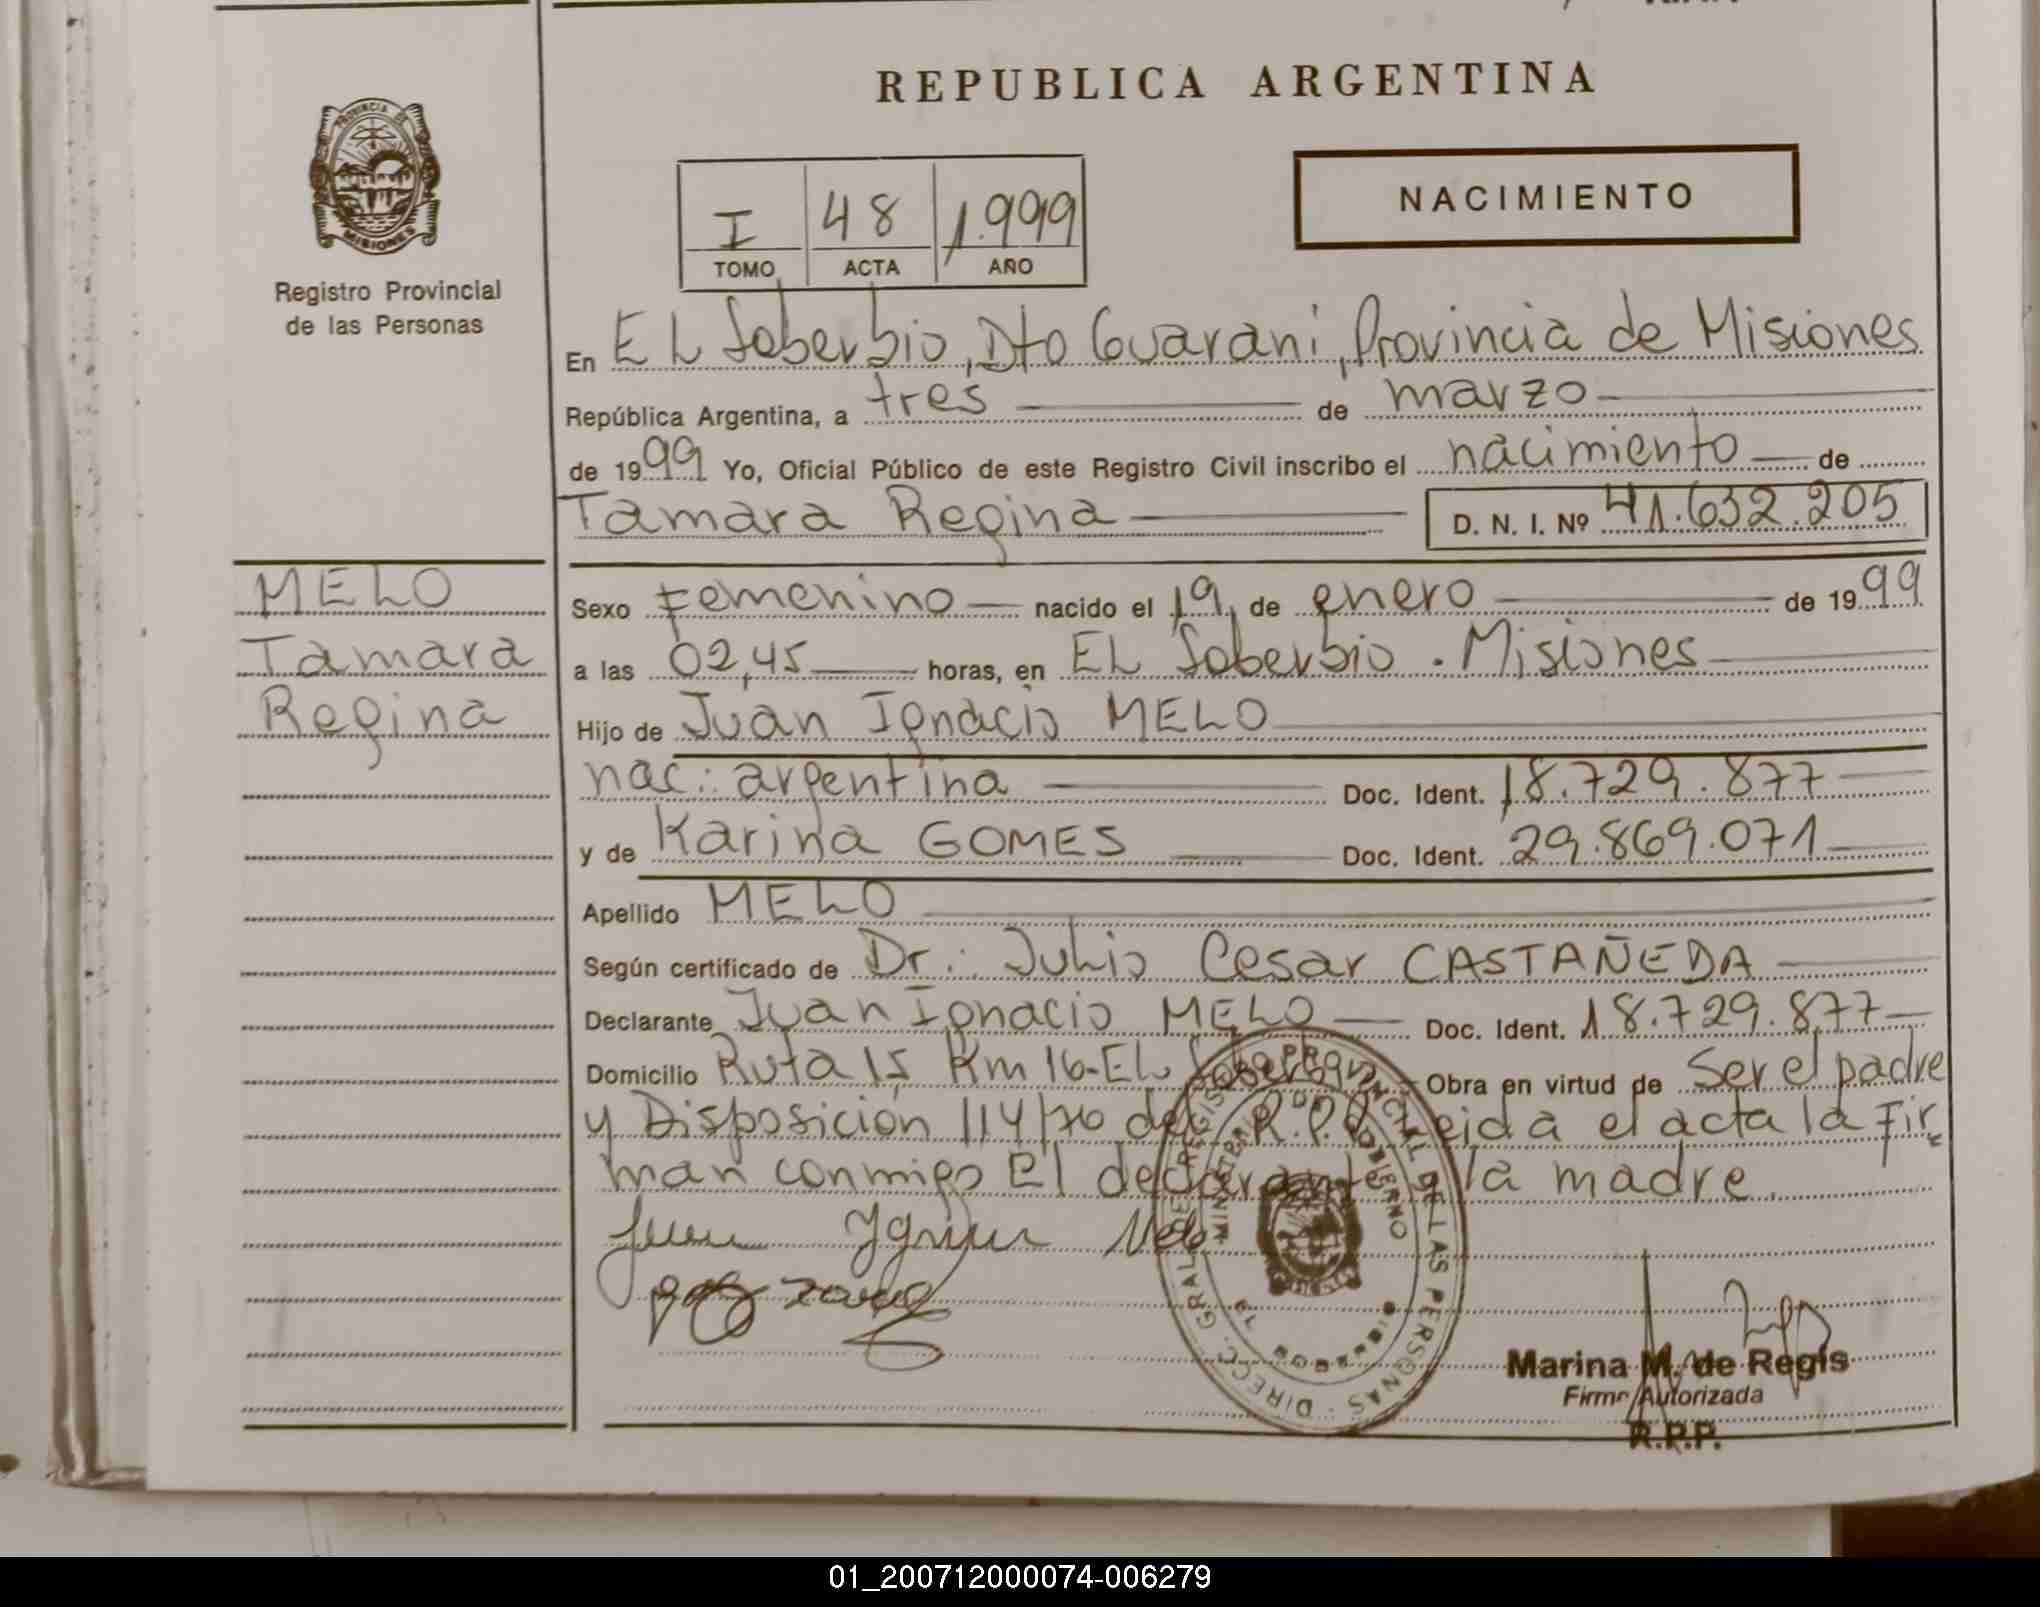 REPUBLICA ARGENTINA
PROVINCIA DE
MISIONES
Registro Provincial
de las Personas
NACIMIENTO
I 48 1.999
TOMO ACTA AÑO
En EL Soberbio, Dto Guarani, Provincia de Misiones
República Argentina, a tres de marzo
de 1999 Yo, Oficial Público de este Registro Civil inscribo el nacimiento de
Tamara Regina D. N. I. Nº 41.632.205
MELO
Tamara
Regina
Sexo Femenino nacido el 19 de enero de 1999
a las 02,45 horas, en EL Soberbio. Misiones
Hijo de Juan Ignacio MELO
nac: argentina Doc. Ident. 18.729.877
y de Karina GOMES Doc. Ident. 29.869.071
Apellido MELO
Según certificado de Dr.: Julio Cesar CASTAÑEDA
Declarante Juan Ignacio MELO Doc. Ident. 18.729.877
Domicilio Ruta 15 Km 16-EL Soberbio Obra en virtud de Ser el padre
y Disposición 114/76 del R.P.P. Leida el acta la Fir
man conmigo El declarante y la madre.
Juan Ignacio Melo
DIREC. GRAL. DE REGISTRO PROVINCIAL DE LAS PERSONAS
MINISTERIO DE GOBIERNO
MISIONES
Marina M. de Regis
Firma Autorizada
R.P.P.
01_200712000074-006279